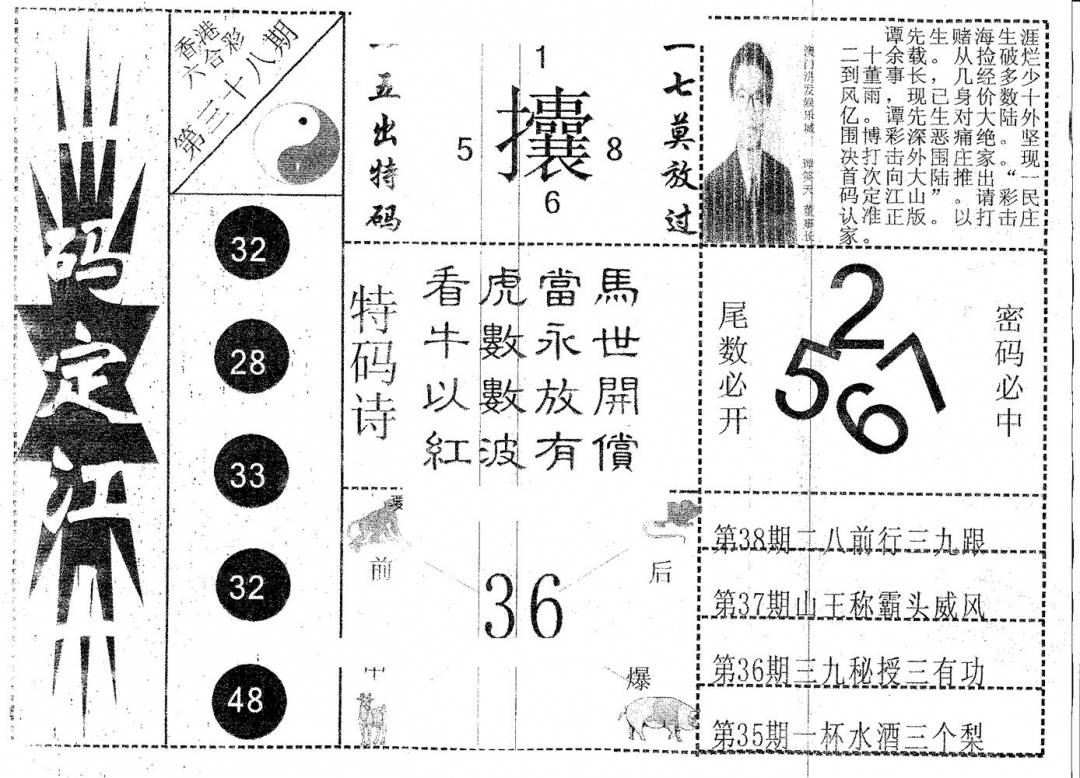 码定江山
香港
六合彩
第三十八期
32
28
33
32
48
一五出特码
1
5
攮
8
6
一七莫放过
谭先生赌海生涯
二十余载。从捡破烂
到董事长，几经多少
风雨，现已身价数十
亿。谭先生对大陆外
围博彩深恶痛绝。坚
决打击外围庄家。现
首次向大陆推出“一
码定江山”。请彩民
认准正版。以打击庄
家。
特码诗
看虎當馬
牛數永世
以數放開
紅波有償
尾数必开
2
5
7
6
密码必中
前
后
36
爆
第38期二八前行三九跟
第37期山王称霸头威风
第36期三九秘授三有功
第35期一杯水酒三个梨